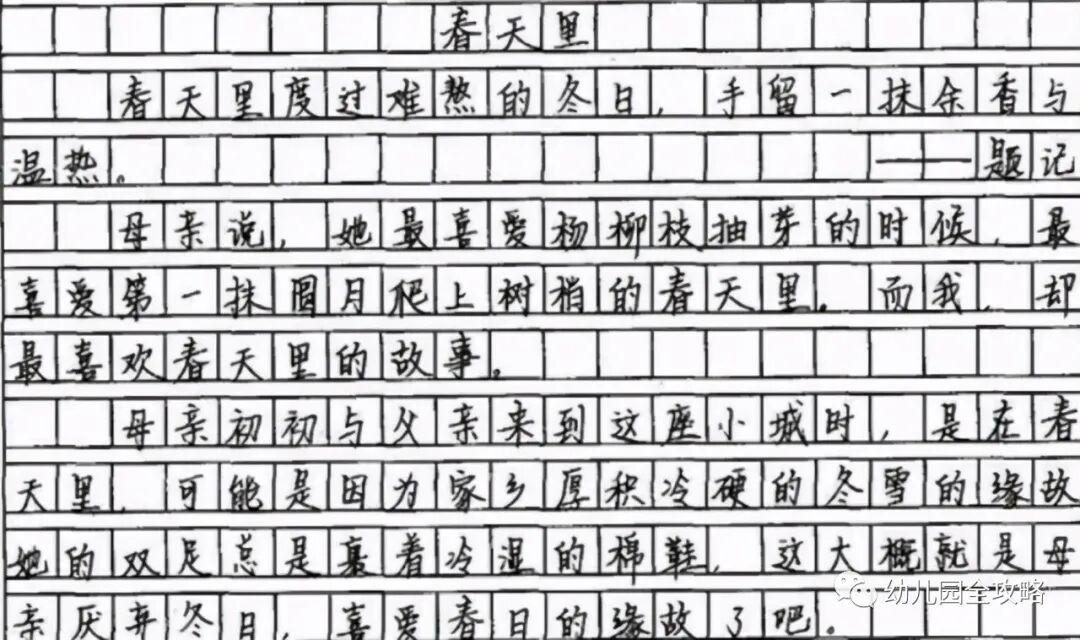 春天里
春天里度过难熬的冬日，手留一抹余香与
温热。 ——题记
母亲说，她最喜爱杨柳枝抽芽的时候，最
喜爱第一抹圆月爬上树梢的春天里。而我，却
最喜欢春天里的故事。
母亲初初与父亲来到这座小城时，是在春
天里，可能是因为家乡厚积冷硬的冬雪的缘故
她的双足总是裹着冷湿的棉鞋，这大概就是母
亲厌弃冬日，喜爱春日的缘故了吧。
幼儿园全攻略